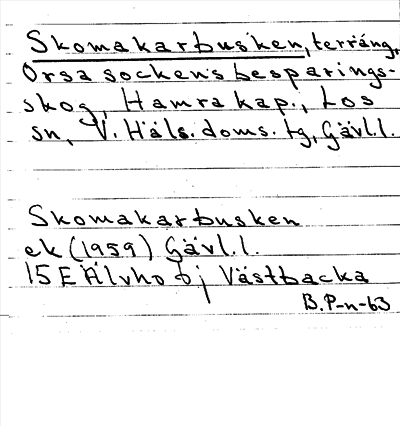 Skomakarbusken, terräng,
Orsa sockens besparings-
skog, Hamra kap., Los
sn, V. Häls. doms. tg, Gävl.l.
Skomakarbusken
ek (1959) Gävl.l.
15E Älvho bj Västbacka
B.P-n-63